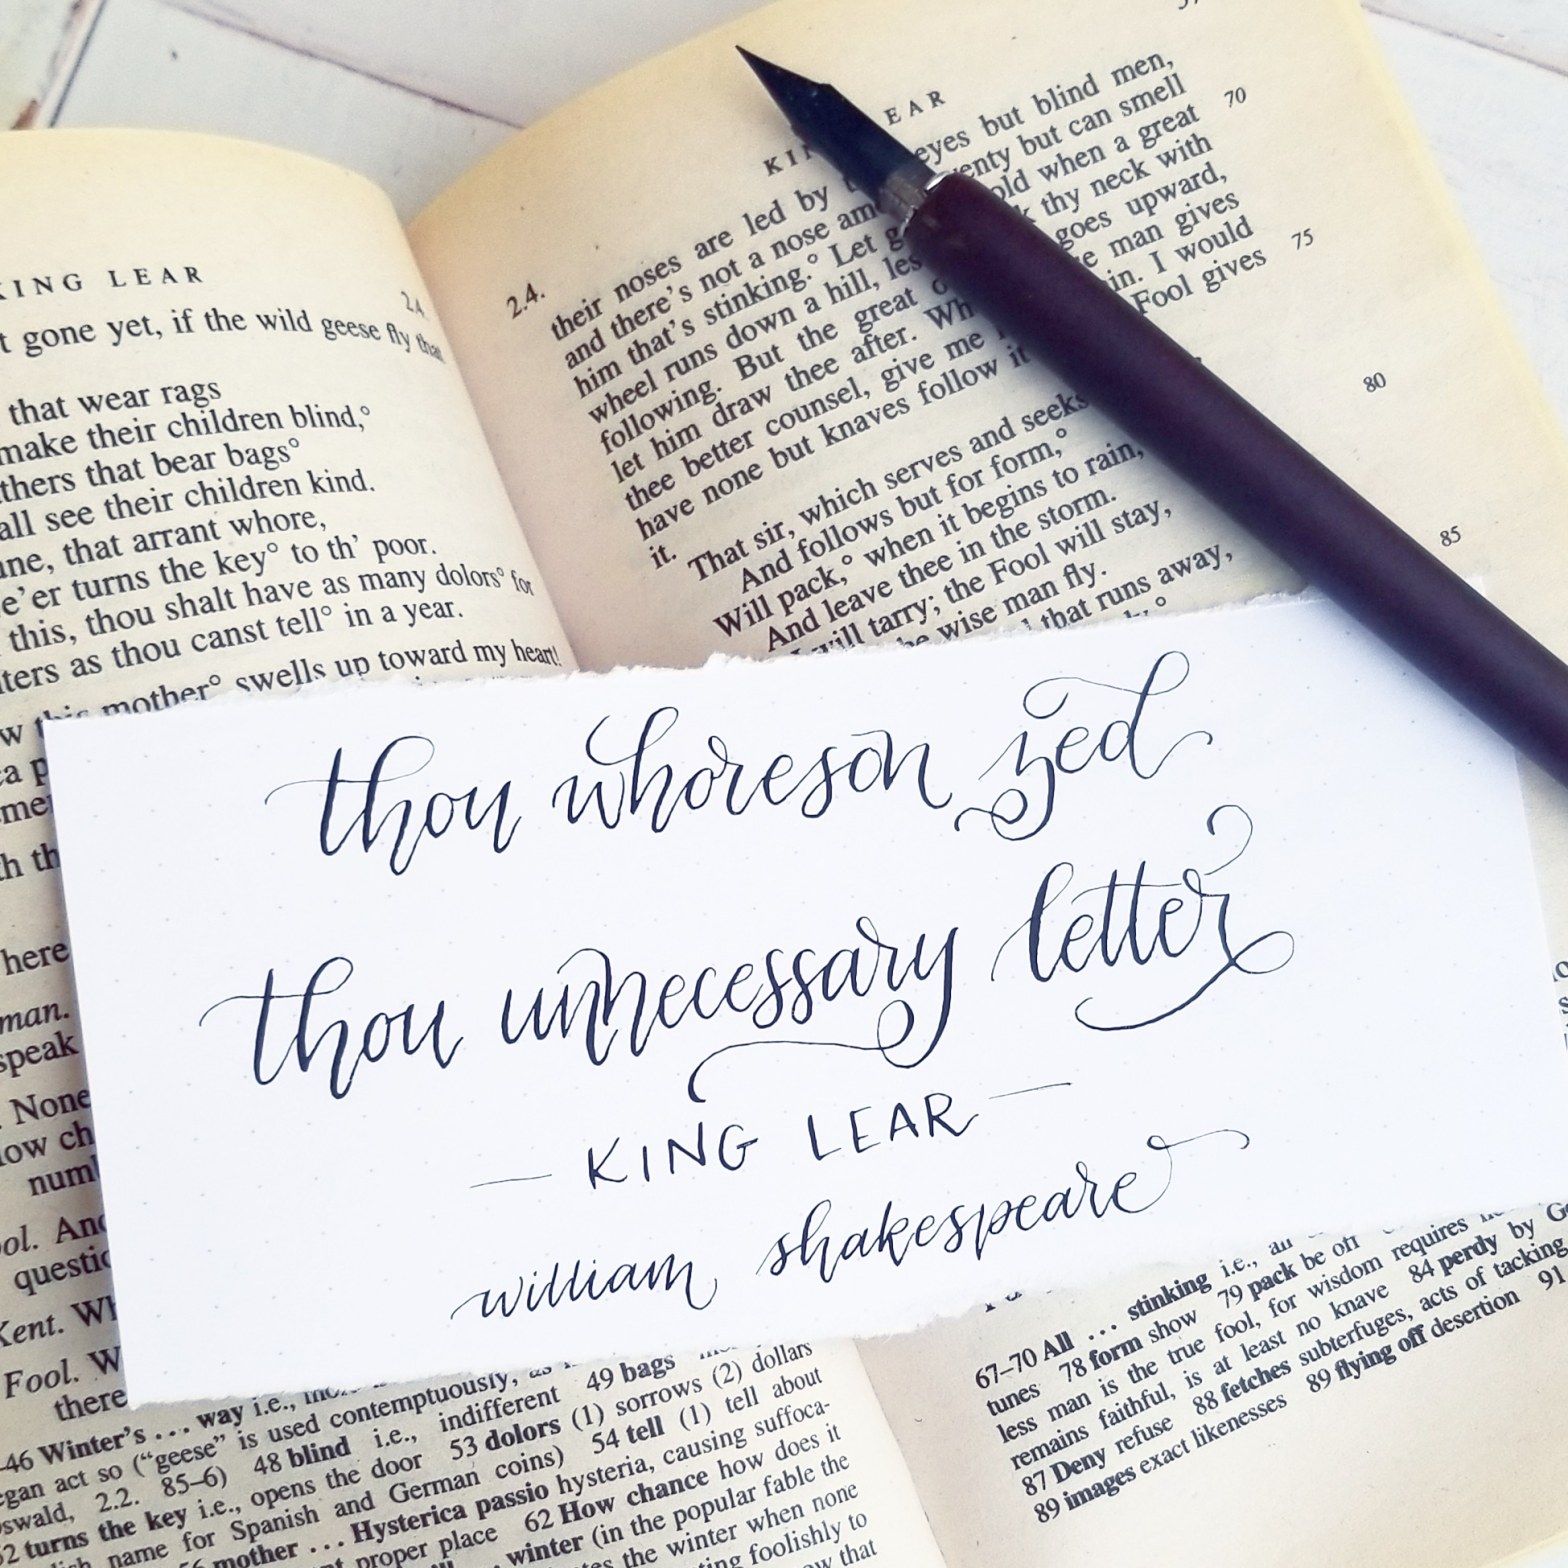 KING LEAR
2.4.
t gone yet, if the wild geese fly that
that wear rags
make their children blind,°
thers that bear bags°
all see their children kind.
une, that arrant whore,
e'er turns the key° to th' poor.
this, thou shalt have as many dolors° for
ters as thou canst tell° in a year.
w this mother° swells up toward my heart!
here
man.
speak
None
low ch
num
ool. And
questio
Kent. Wh
Fool. W
there
-46 Winter's ... way i.e.,
egan act so ("geese" is used contemptuously, as
swald, 2.2. 85–6) 48 blind i.e., indifferent 49 bags
52 turns the key i.e., opens the door 53 dolors (1) sorrows (2) dollars
name for Spanish and German coins) 54 tell (1) tell about
56 mother ... Hysterica passio hysteria, causing suffoca-
proper place 62 How chance how does it
winter (in the popular fable the
the winter when none
foolishly to
that
KING LEAR
2.4.
their noses are led by eyes but blind men,
and there's not a nose among twenty but can smell 70
him that's stinking.° Let go hold when a great
wheel runs down a hill, lest thy neck with
following. But the great goes upward,
let him draw thee after. When man gives 75
thee better counsel, give me again. I would
have none but knaves follow it Fool gives
it.
That sir, which serves and seeks
And follows but for form,° 80
Will pack,° when it begins to rain,
And leave thee in the storm.
I will tarry; the Fool will stay,
the wise man fly.
that runs away, 85
thou whoreson zed
thou unnecessary letter
— KING LEAR —
william shakespeare
67–70 All ... stinking i.e., all
tunes 78 form show 79 pack be off
less man is the true fool, for wisdom requires
remains faithful, is at least no knave 84 perdy by
87 Deny refuse 88 fetches subterfuges, acts of tacking
89 images exact likenesses 89 flying off desertion 91